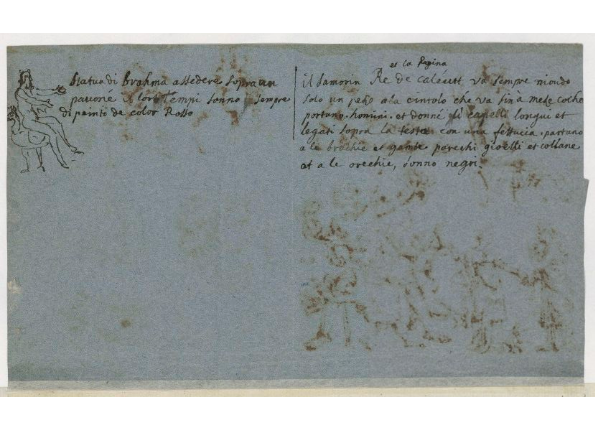 Statua di Brahma assedere sopra un
pavone i loro Tempi sonno sempre
di painte de color Rosso
et la Regina
il Samorin Re de Calecut, va sempre niondo
solo un pano a la cintola che va fin a meze
portano homini, et donne li capelli longue et
legati sopra la testa con una fettucia, portano
a le brachie et gambe parechi gioelli et collane
et a le orechie, sonno negri